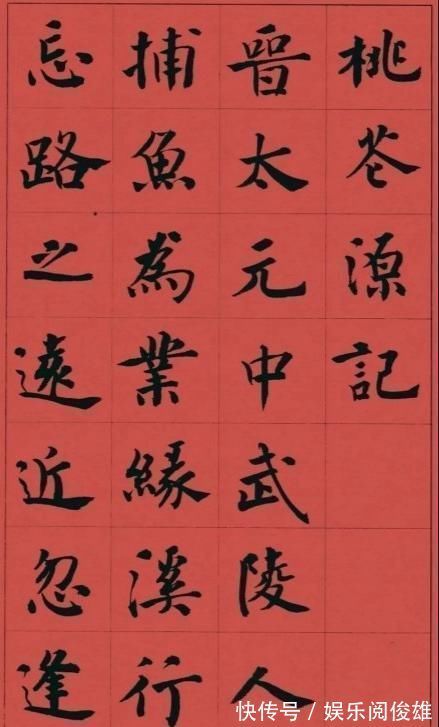 桃花源記
晉太元中武陵人
捕魚為業緣溪行
忘路之遠近忽逢
快传号 / 娱乐阅俊雄